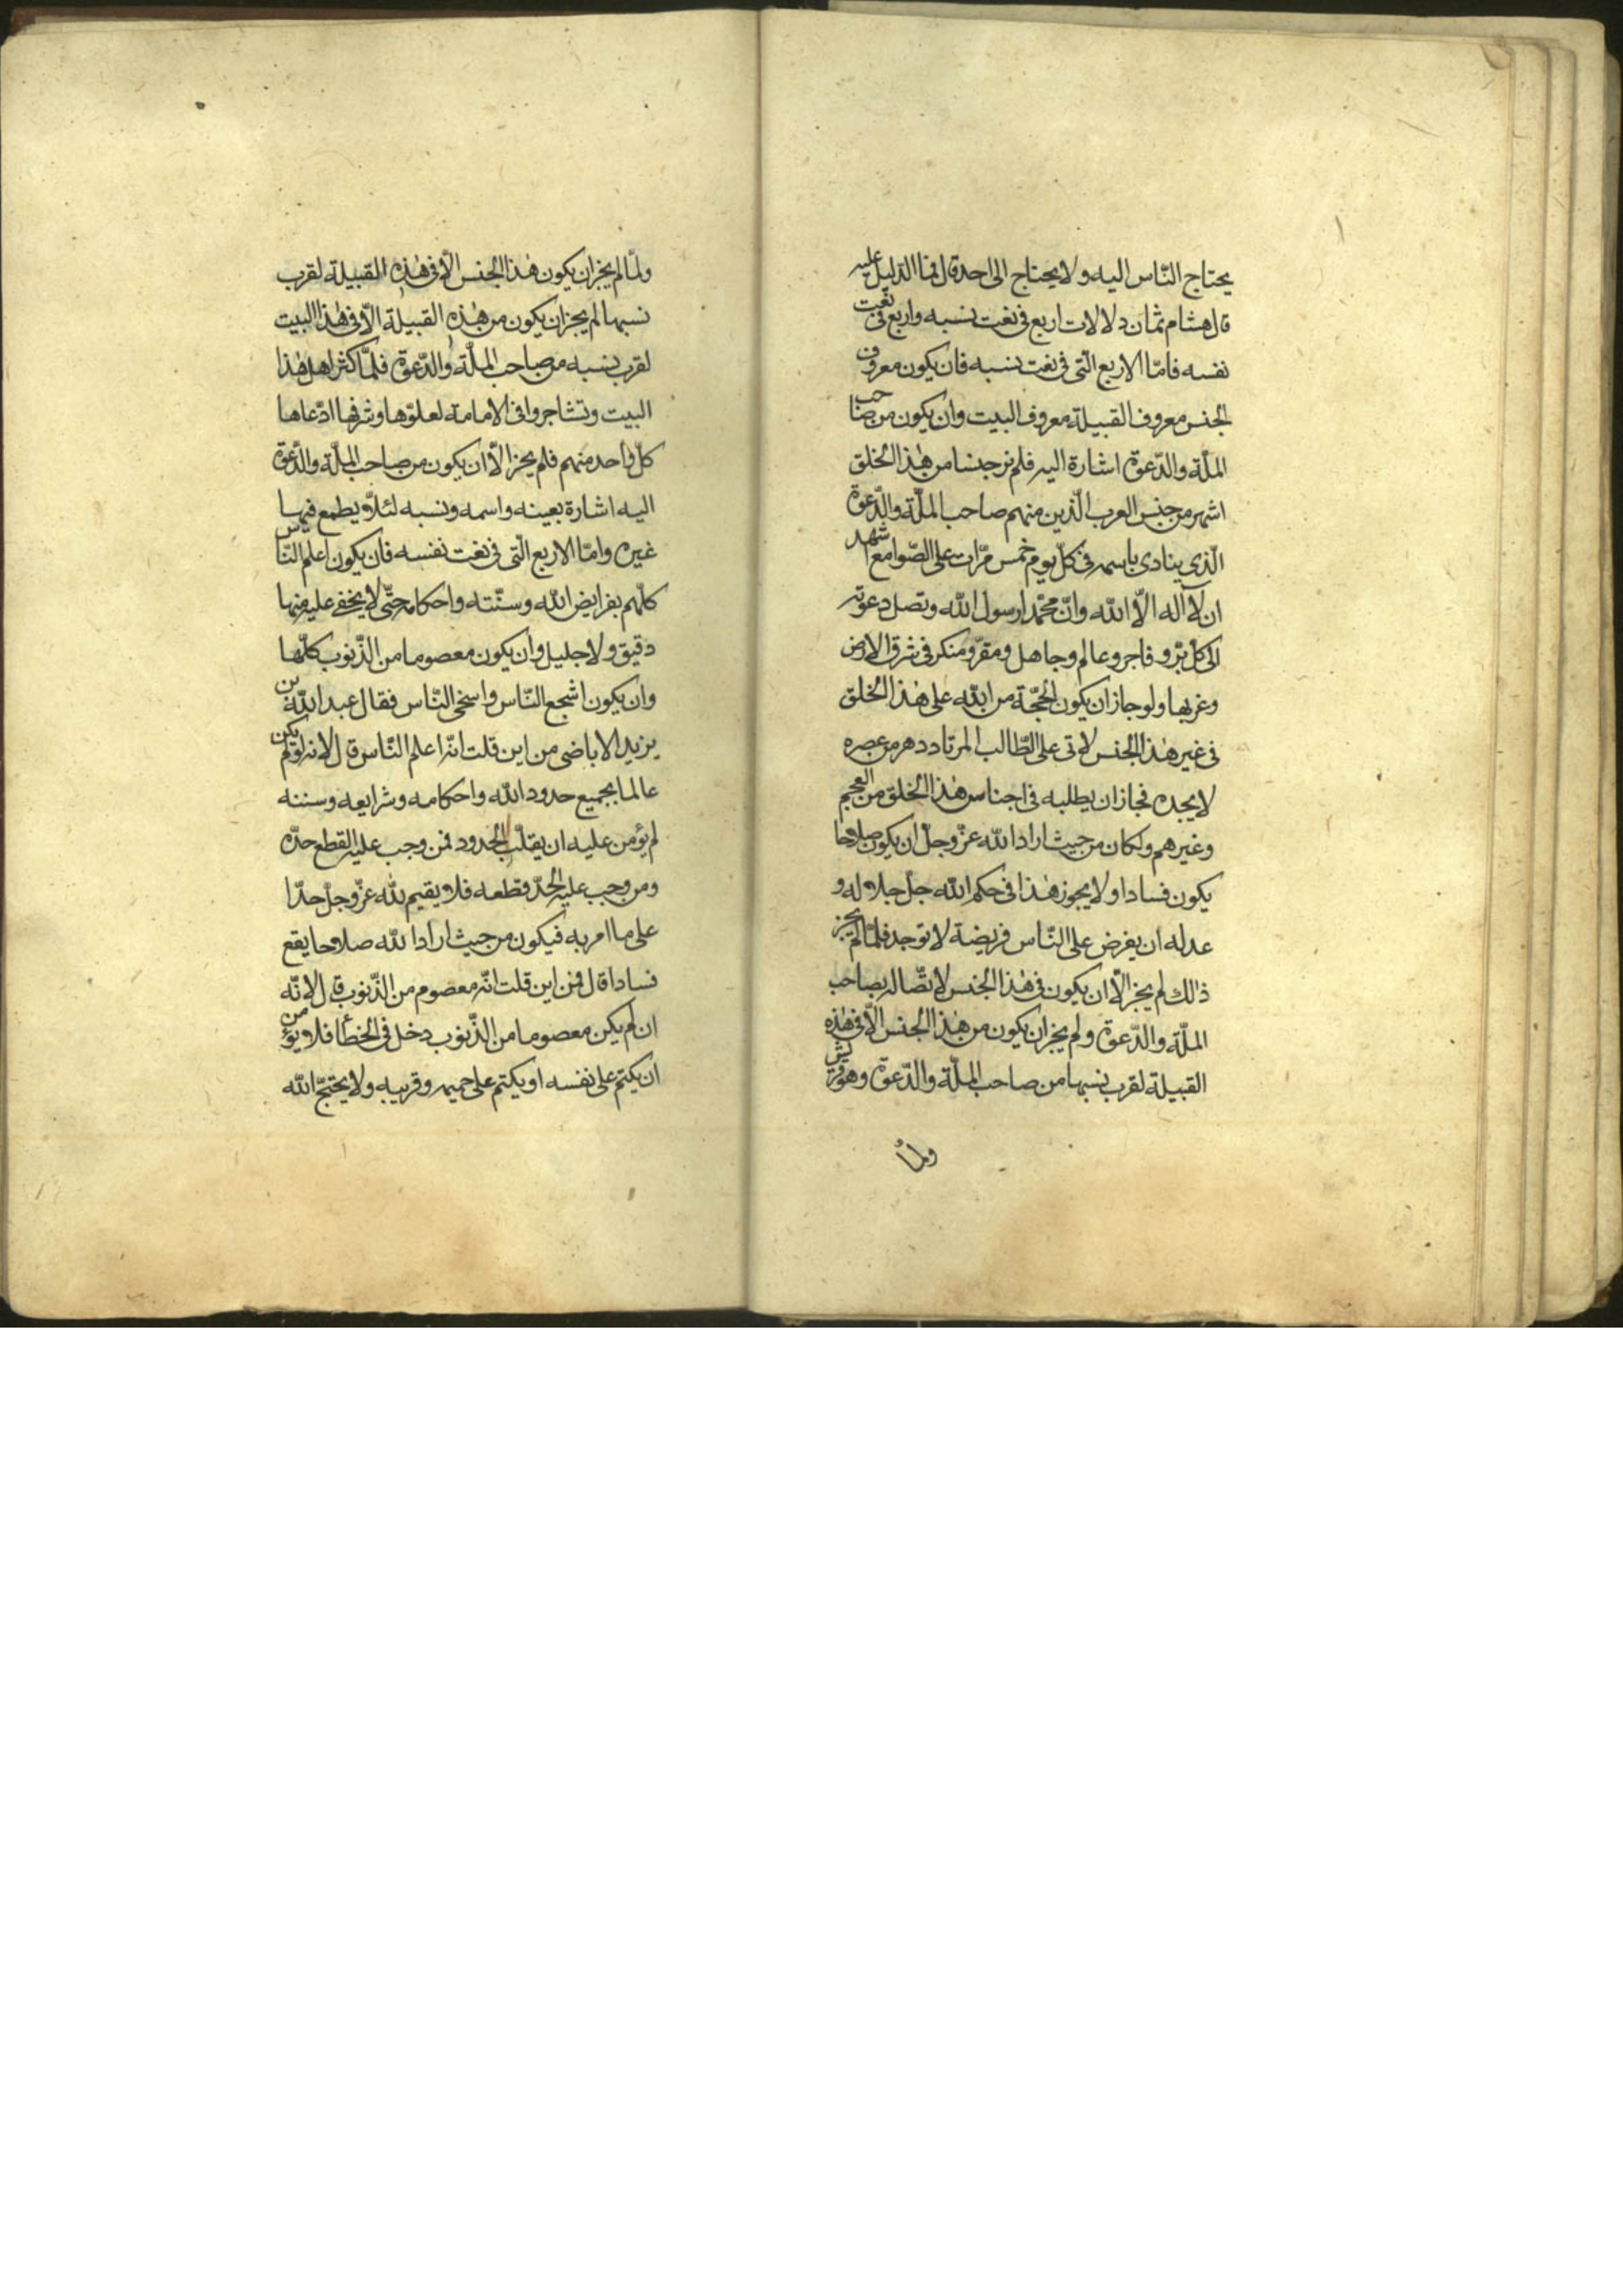 يحتاج النّاس اليه ولا يحتاج الى احد قال فما الدّليل عليه
قال هشام ثمان دلالات اربع فى نعت نسبه واربع فى نعت
نفسه فامّا الاربع الّتى فى نعت نسبه فان يكون معروف
الجنس معروف القبيلة معروف البيت وان يكون من صاحب
الملّة والدّعوة اشارة اليه فلم نر جنسا من هٰذا الخلق
اشهر من جنس العرب الّذين منهم صاحب الملّة والدّعوة
الّذى ينادى باسمه فى كلّ يوم خمس مرّات على الصّوامع اشهد
ان لا آله الّا اللّه وانّ محمّدا رسول اللّه وتصل دعوته
الى كلّ برّ و فاجر وعالم وجاهل ومقرّ ومنكر فى شرق الارض
وغربها ولو جاز ان يكون الحجّة من اللّه على هٰذا الخلق
فى غير هٰذا الجنس لاتى على الطّالب المرتاد دهر من عصره
لا يجده فجاز ان يطلبه فى اجناس هٰذا الخلق من العجم
وغيرهم ولكان من حيث اراد اللّه عزّ وجلّ ان يكون صلاحا
يكون فسادا ولا يجوز هٰذا فى حكم اللّه جلّ جلاله و
عدله ان يفرض على النّاس فريضة لا توجد فلمّا لم يجز
ذٰلك لم يجز الّا ان يكون فى هٰذا الجنس لاتّصاله بصاحب
الملّة والدّعوة ولم يجز ان يكون من هٰذا الجنس الّا فى هٰذه
القبيلة لقرب نسبها من صاحب الملّة والدّعوة وهو قريش
ولمّا
ولمّا لم يجز ان يكون هٰذا الجنس الّا فى هٰذه القبيلة لقرب
نسبها لم يجز ان يكون من هٰذه القبيلة الّا فى هٰذا البيت
لقرب نسبه من صاحب الملّة والدّعوة فلمّا كثر اهل هٰذا
البيت وتشاجروا فى الامامة لعلوّها وشرفها ادّعاها
كلّ واحد منهم فلم يجز الّا ان يكون من صاحب الملّة والدّعوة
اليه اشارة بعينه واسمه ونسبه لئلّا يطمع فيها
غيره وامّا الاربع الّتى فى نعت نفسه فان يكون اعلم النّاس
كلّهم بفرايض اللّه وسنّته واحكامه حتّى لا يخفى عليه منها
دقيق ولا جليل وان يكون معصوما من الذّنوب كلّها
وان يكون اشجع النّاس واسخى النّاس فقال عبد اللّه بن
يزيد الاباضى من اين قلت انّه اعلم النّاس قال لانه لو لم يكن
عالما بجميع حدود اللّه واحكامه وشرايعه وسننه
لم يؤمن عليه ان يقلّب الحدود فمن وجب عليه القطع حدّه
ومن وجب عليه الحدّ قطعه فلا يقيم للّه عزّ وجلّ حدّا
على ما امر به فيكون من حيث اراد اللّه صلاحا يقع
فسادا قال فمن اين قلت انّه معصوم من الذّنوب قال لانّه
ان لم يكن معصوما من الذّنوب دخل فى الخطأ فلا يؤمن
ان يكتم على نفسه او يكتم على حميمه وقريبه ولا يحتجّ اللّه